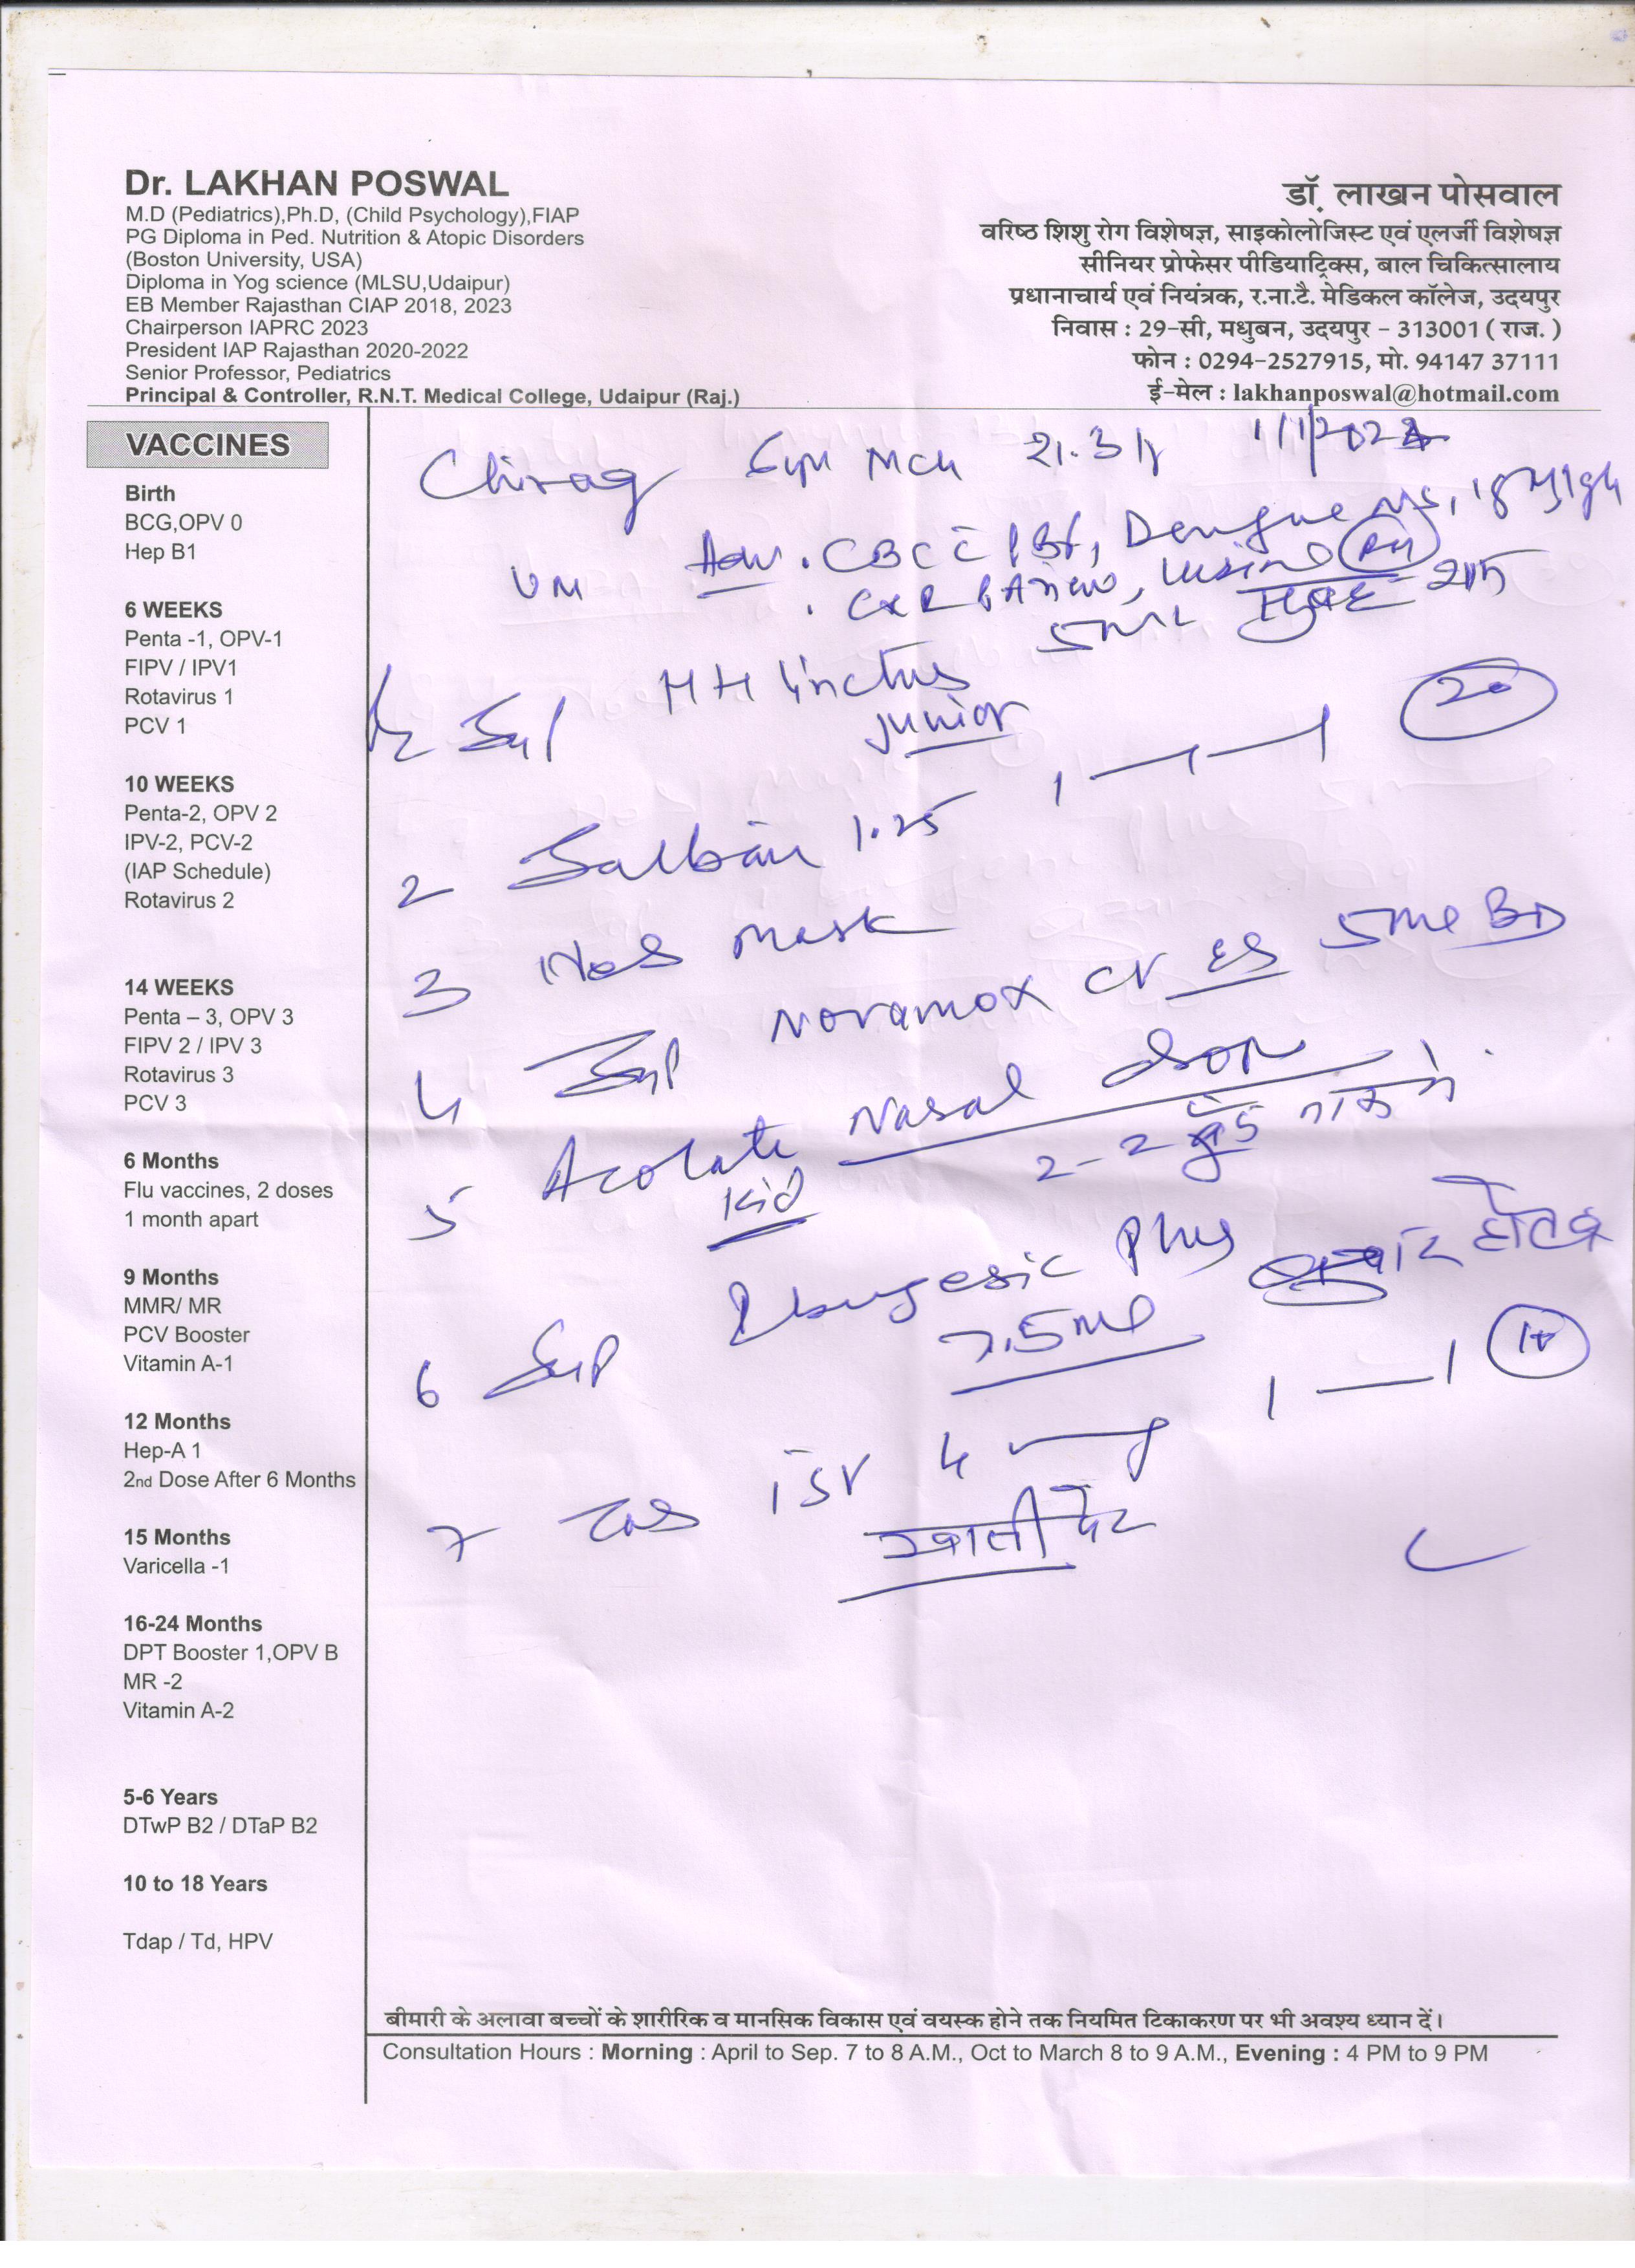 Dr. LAKHAN POSWAL
M.D (Pediatrics),Ph.D, (Child Psychology),FIAP
PG Diploma in Ped. Nutrition & Atopic Disorders
(Boston University, USA)
Diploma in Yog science (MLSU,Udaipur)
EB Member Rajasthan CIAP 2018, 2023
Chairperson IAPRC 2023
President IAP Rajasthan 2020-2022
Senior Professor, Pediatrics
Principal & Controller, R.N.T. Medical College, Udaipur (Raj.)
डॉ. लाखन पोसवाल
वरिष्ठ शिशु रोग विशेषज्ञ, साइकोलोजिस्ट एवं एलर्जी विशेषज्ञ
सीनियर प्रोफेसर पीडियाट्रिक्स, बाल चिकित्सालाय
प्रधानाचार्य एवं नियंत्रक, र.ना.टै. मेडिकल कॉलेज, उदयपुर
निवास : 29-सी, मधुबन, उदयपुर - 313001 ( राज. )
फोन : 0294-2527915, मो. 94147 37111
ई-मेल : lakhanposwal@hotmail.com
VACCINES
Birth
BCG,OPV 0
Hep B1
6 WEEKS
Penta -1, OPV-1
FIPV / IPV1
Rotavirus 1
PCV 1
10 WEEKS
Penta-2, OPV 2
IPV-2, PCV-2
(IAP Schedule)
Rotavirus 2
14 WEEKS
Penta – 3, OPV 3
FIPV 2 / IPV 3
Rotavirus 3
PCV 3
6 Months
Flu vaccines, 2 doses
1 month apart
9 Months
MMR/ MR
PCV Booster
Vitamin A-1
12 Months
Hep-A 1
2nd Dose After 6 Months
15 Months
Varicella -1
16-24 Months
DPT Booster 1,OPV B
MR -2
Vitamin A-2
5-6 Years
DTwP B2 / DTaP B2
10 to 18 Years
Tdap / Td, HPV
Chirag 21.3
Adv. CBC Dengue
CXR PA view,
5ml सुबह शाम
Syp HH linctus
junior
20
2 Salbair 1.25
3 Neb mask
4 Syp Novamox CV DS 5ml BD
5 Acolate Nasal drop
Kid 2-2 बूँद नाक में
6 Syp Ibugesic Plus बुखार हो तब
7.5ml
7 4 mg 1 — 1
खाली पेट
बीमारी के अलावा बच्चों के शारीरिक व मानसिक विकास एवं वयस्क होने तक नियमित टिकाकरण पर भी अवश्य ध्यान दें।
Consultation Hours : Morning : April to Sep. 7 to 8 A.M., Oct to March 8 to 9 A.M., Evening : 4 PM to 9 PM